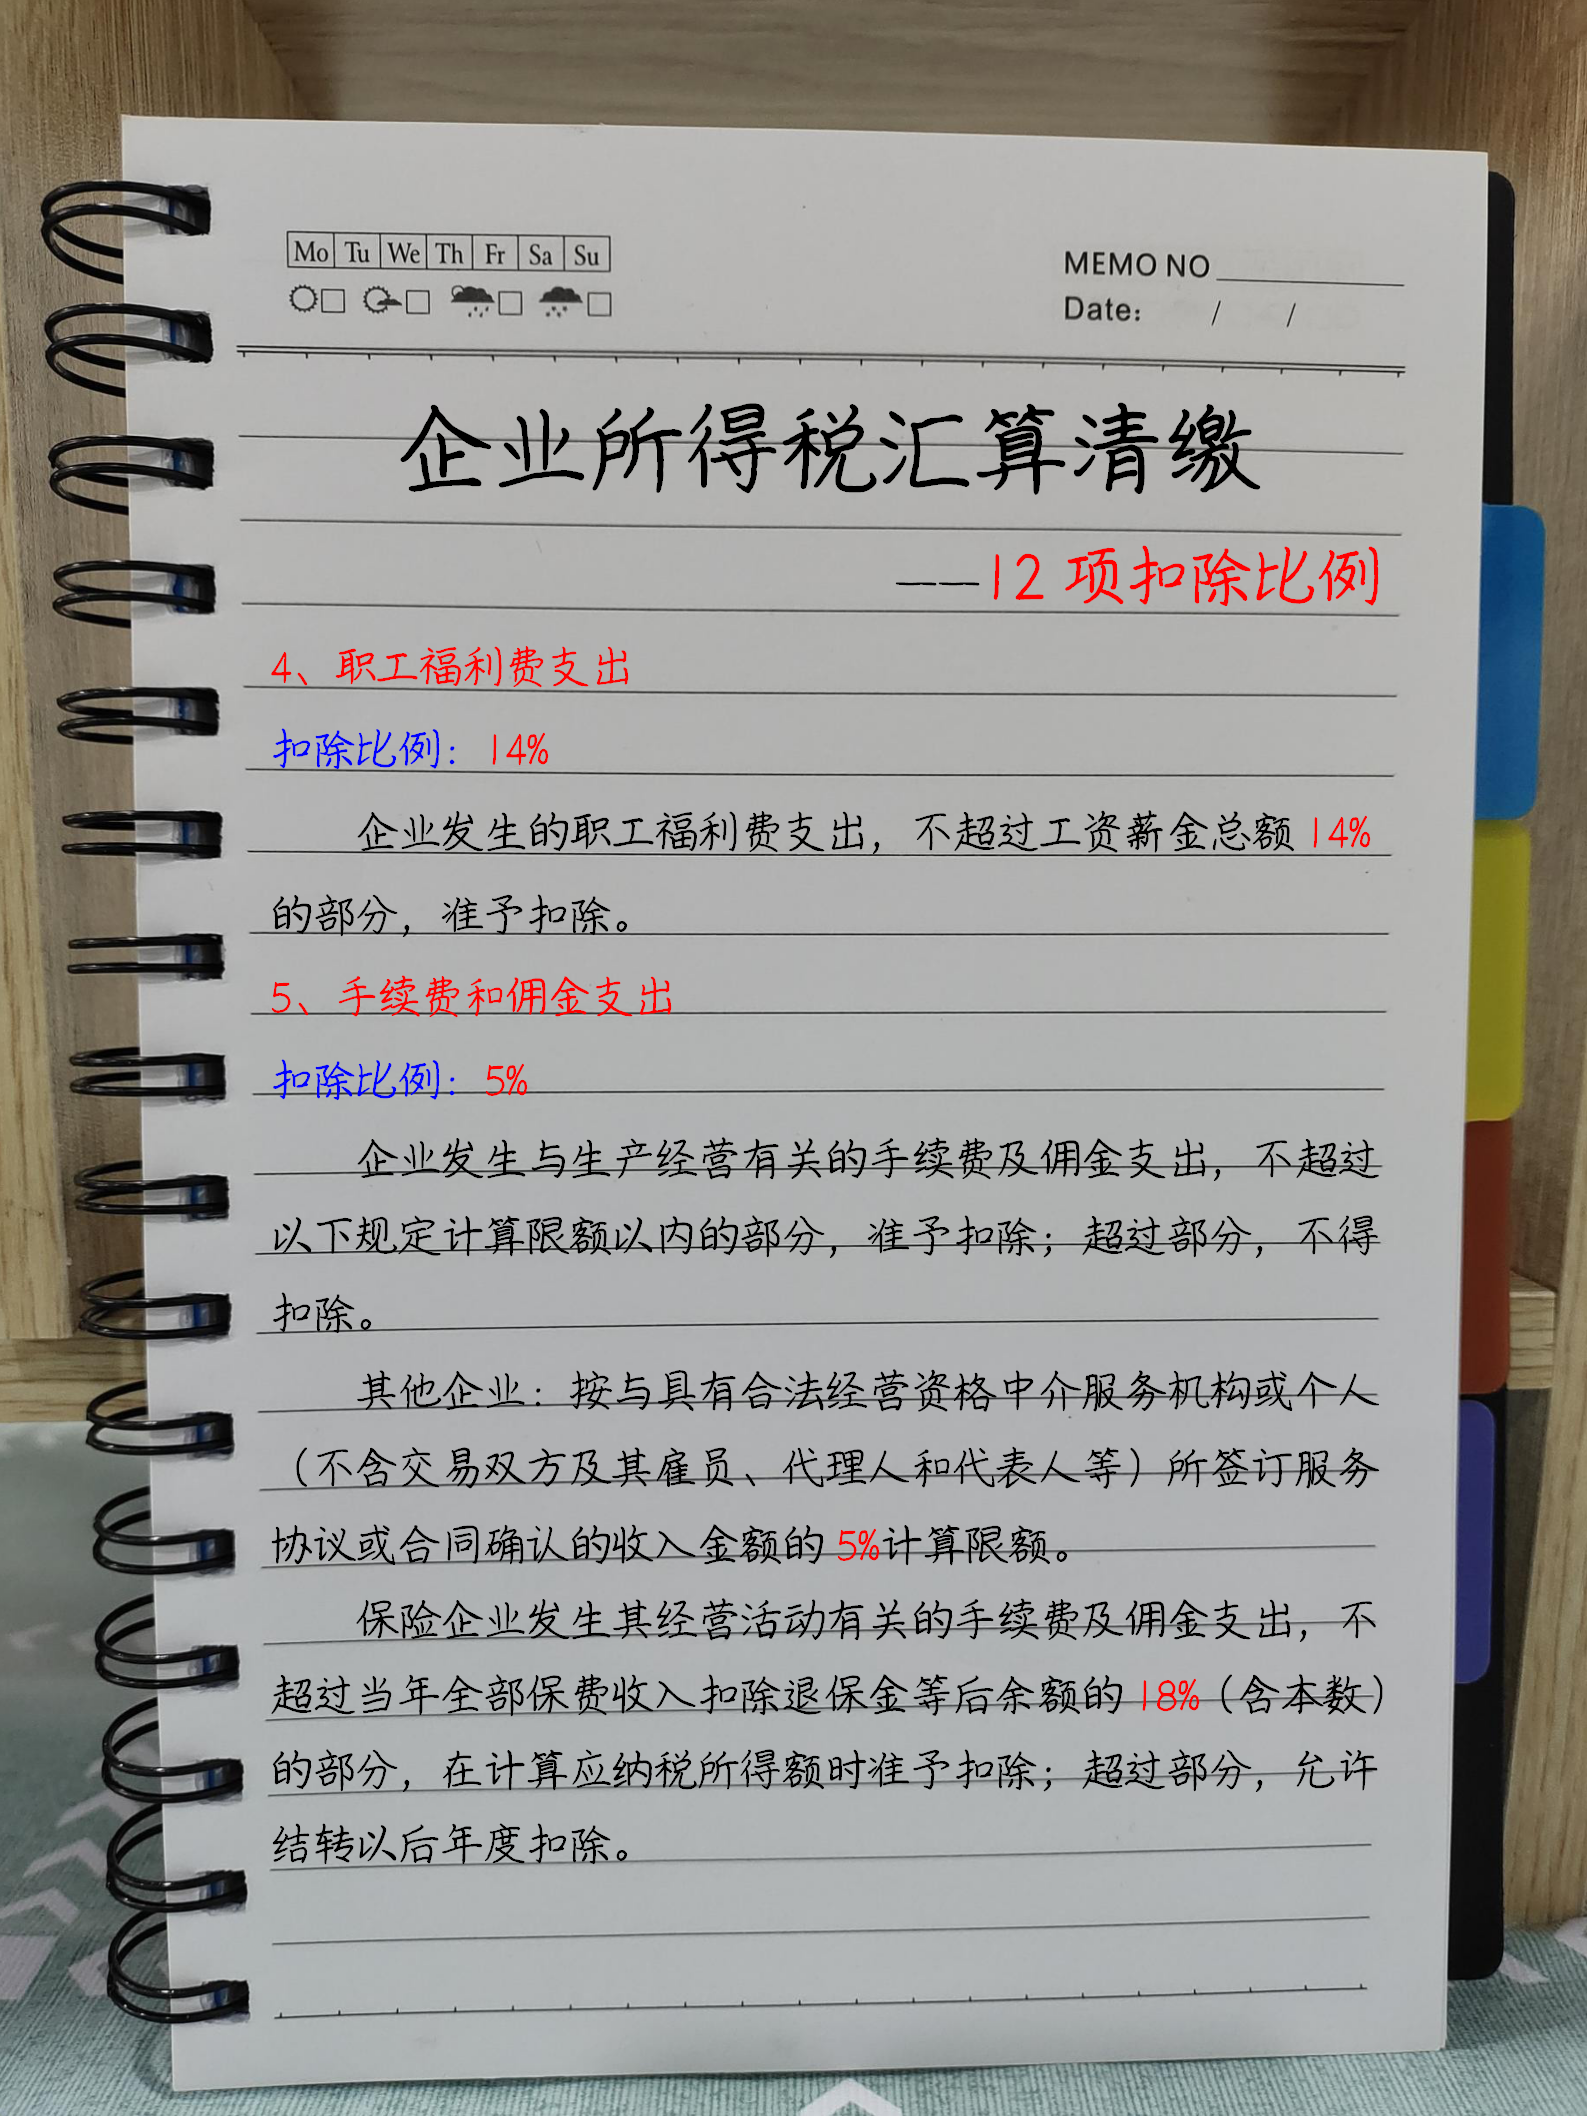 Mo Tu We Th Fr Sa Su
MEMO NO
Date: / /
企业所得税汇算清缴
——12 项扣除比例
4、职工福利费支出
扣除比例：14%
企业发生的职工福利费支出，不超过工资薪金总额 14%
的部分，准予扣除。
5、手续费和佣金支出
扣除比例：5%
企业发生与生产经营有关的手续费及佣金支出，不超过
以下规定计算限额以内的部分，准予扣除；超过部分，不得
扣除。
其他企业：按与具有合法经营资格中介服务机构或个人
（不含交易双方及其雇员、代理人和代表人等）所签订服务
协议或合同确认的收入金额的 5%计算限额。
保险企业发生其经营活动有关的手续费及佣金支出，不
超过当年全部保费收入扣除退保金等后余额的 18%（含本数）
的部分，在计算应纳税所得额时准予扣除；超过部分，允许
结转以后年度扣除。